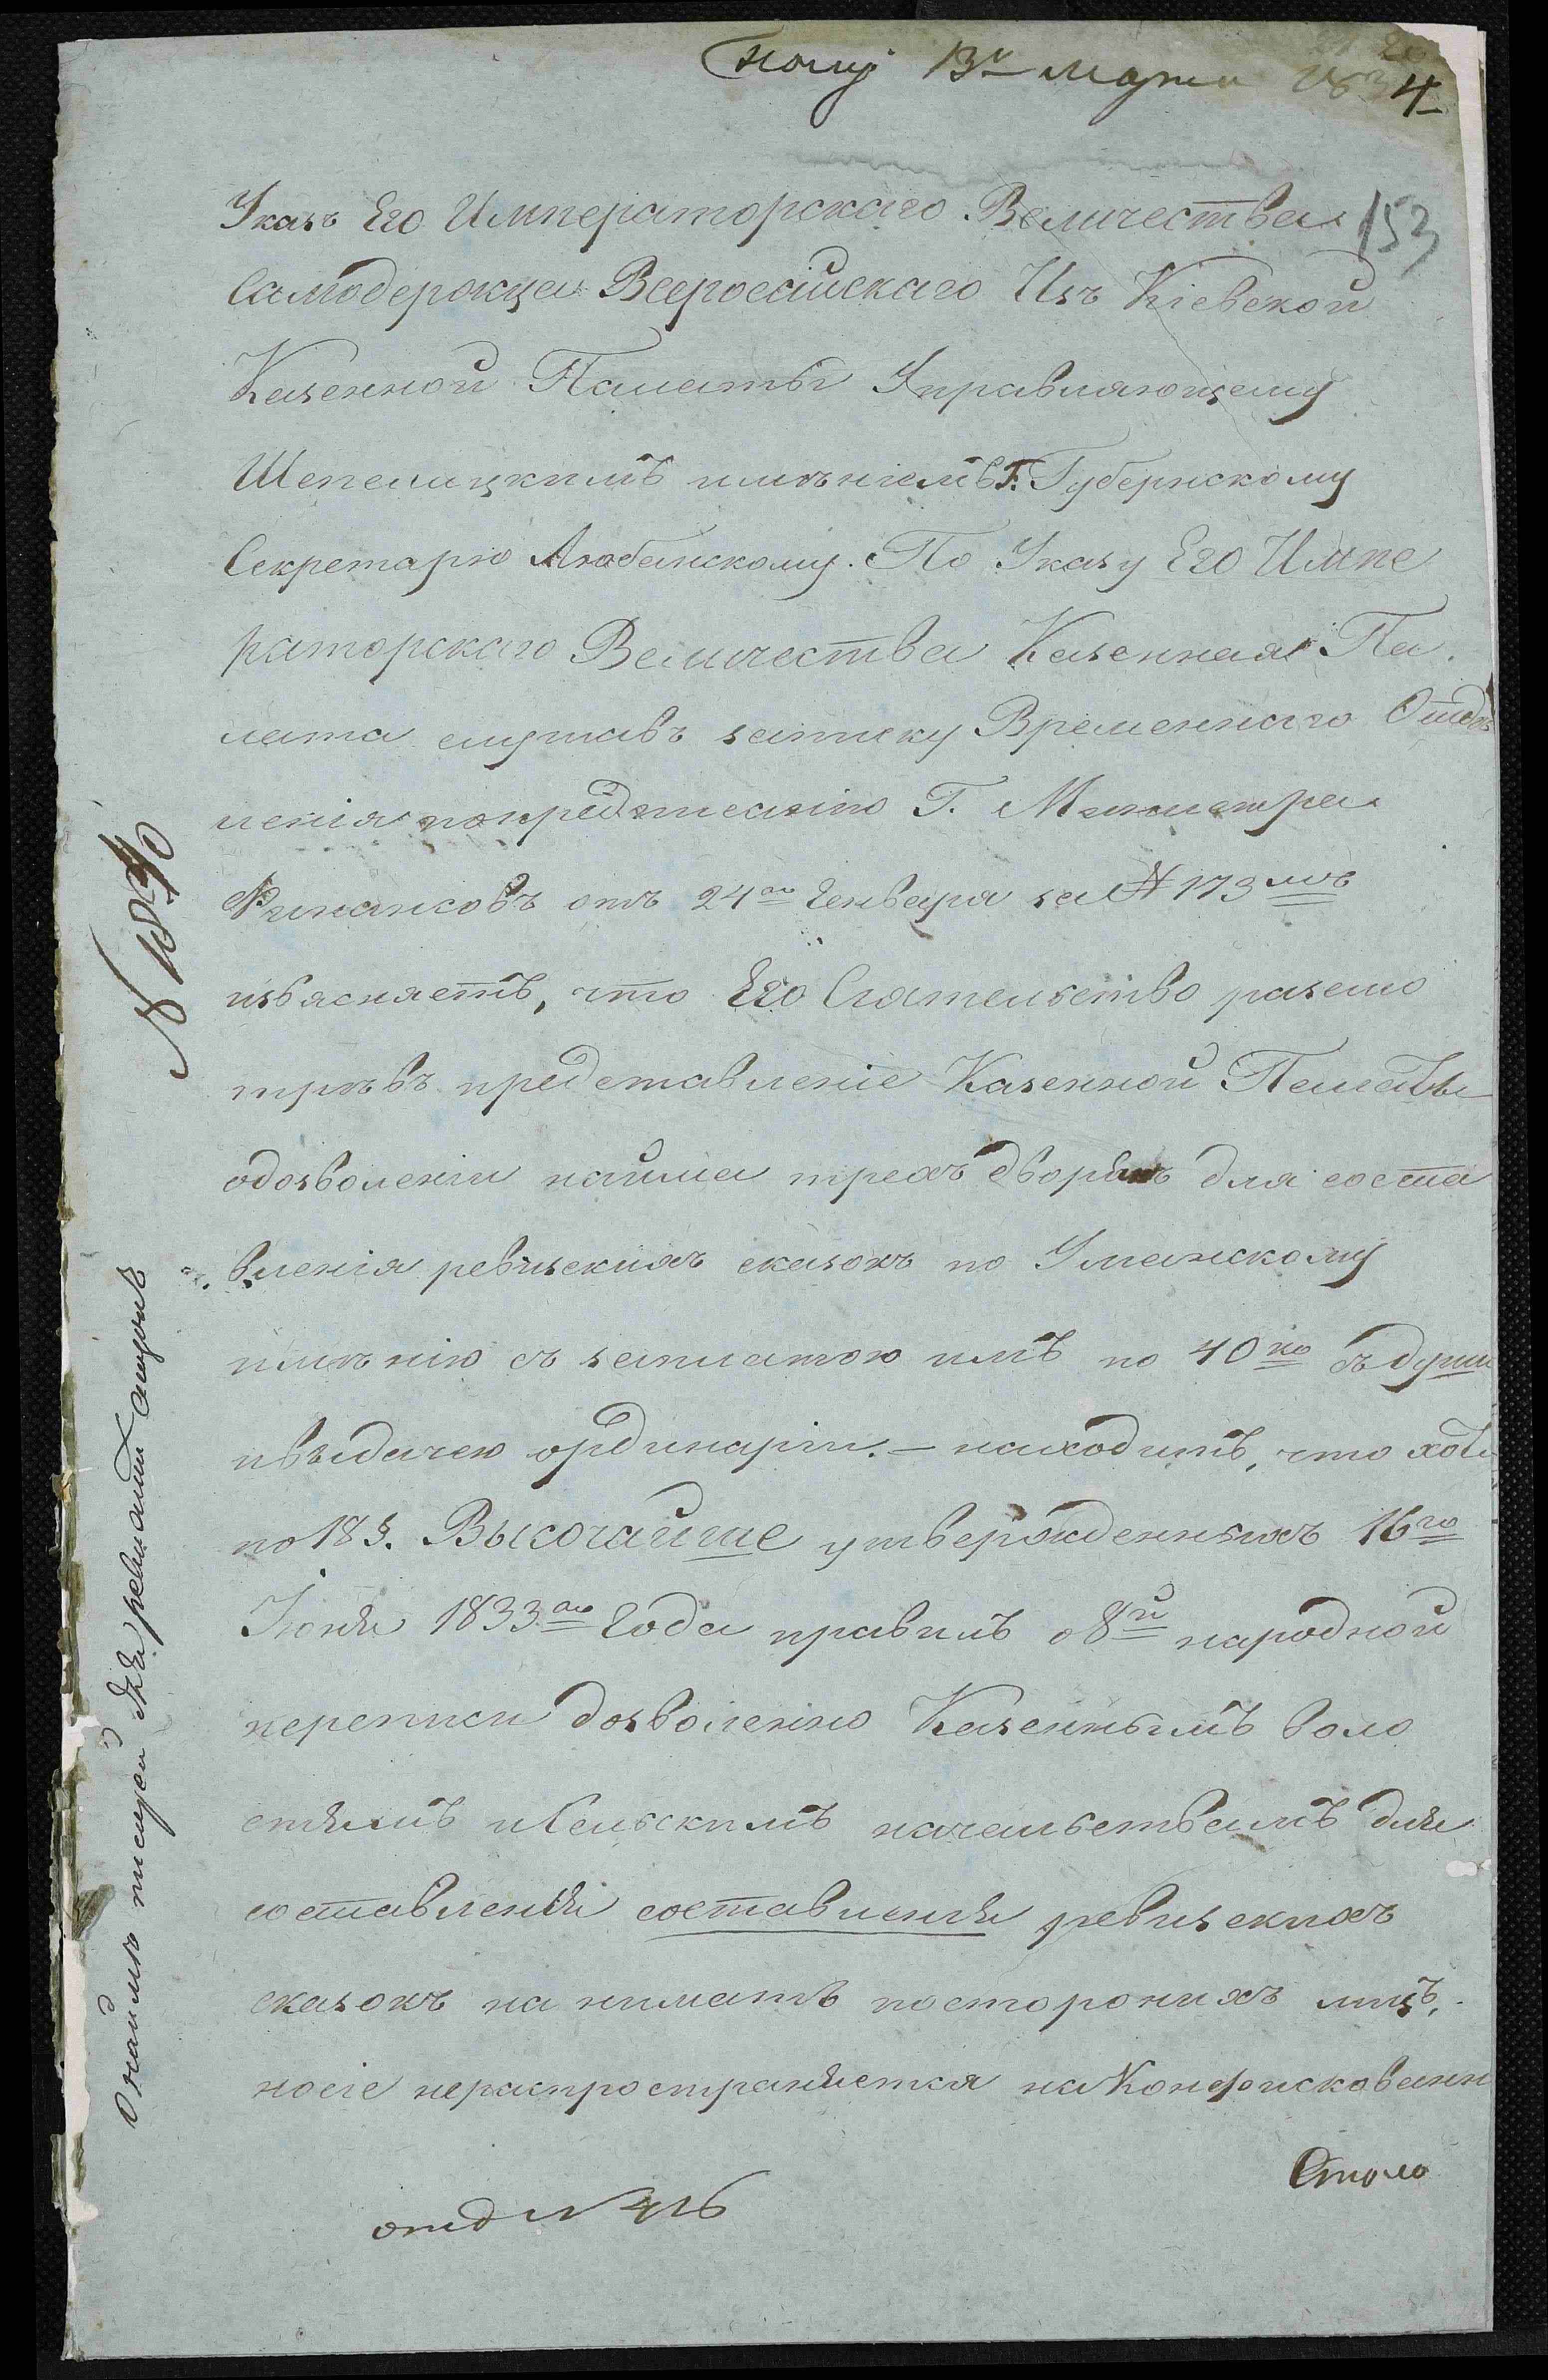 13го Марта 1834
153
Указъ Его Императорскаго Величества
Самодержца Всероссійскаго Изъ Кіевской
Казенной Палаты Управляющему
Шепелицкимъ имѣніемъ Г. Губернскому
Секретарю Любанскому. По Указу Его Импе
раторскаго Величества Казенная Па
лата слушавъ записку Временнаго Отдѣ
ленія попредписанію Г. Министра
Финансовъ отъ 24го Генваря за № 173мъ
изъясняетъ, что Его Сіятельство разсмо
трѣвъ представленіе Казенной Палаты
одозволеніи найма трехъ дворянъ для соста
вленія ревизскихъ сказокъ по Уманскому
имѣнію съ заплатою имъ по 40 ко съ души
ивыдачею ординаріи. — находитъ, что хотя
по 18 §. Высочайше утвержденныхъ 16го
Іюня 1833го года правилъ о 8й народной
переписи дозволенно Казеннымъ воло
стямъ иСельскимъ начальствамъ для
составленія составленія ревизскихъ
сказокъ на нимать постороннихъ лицъ,
носіе нераспространяется на Конфискованн
Столо
отд № 416
№ 1840
О наймѣ писцей для ревизскихъ